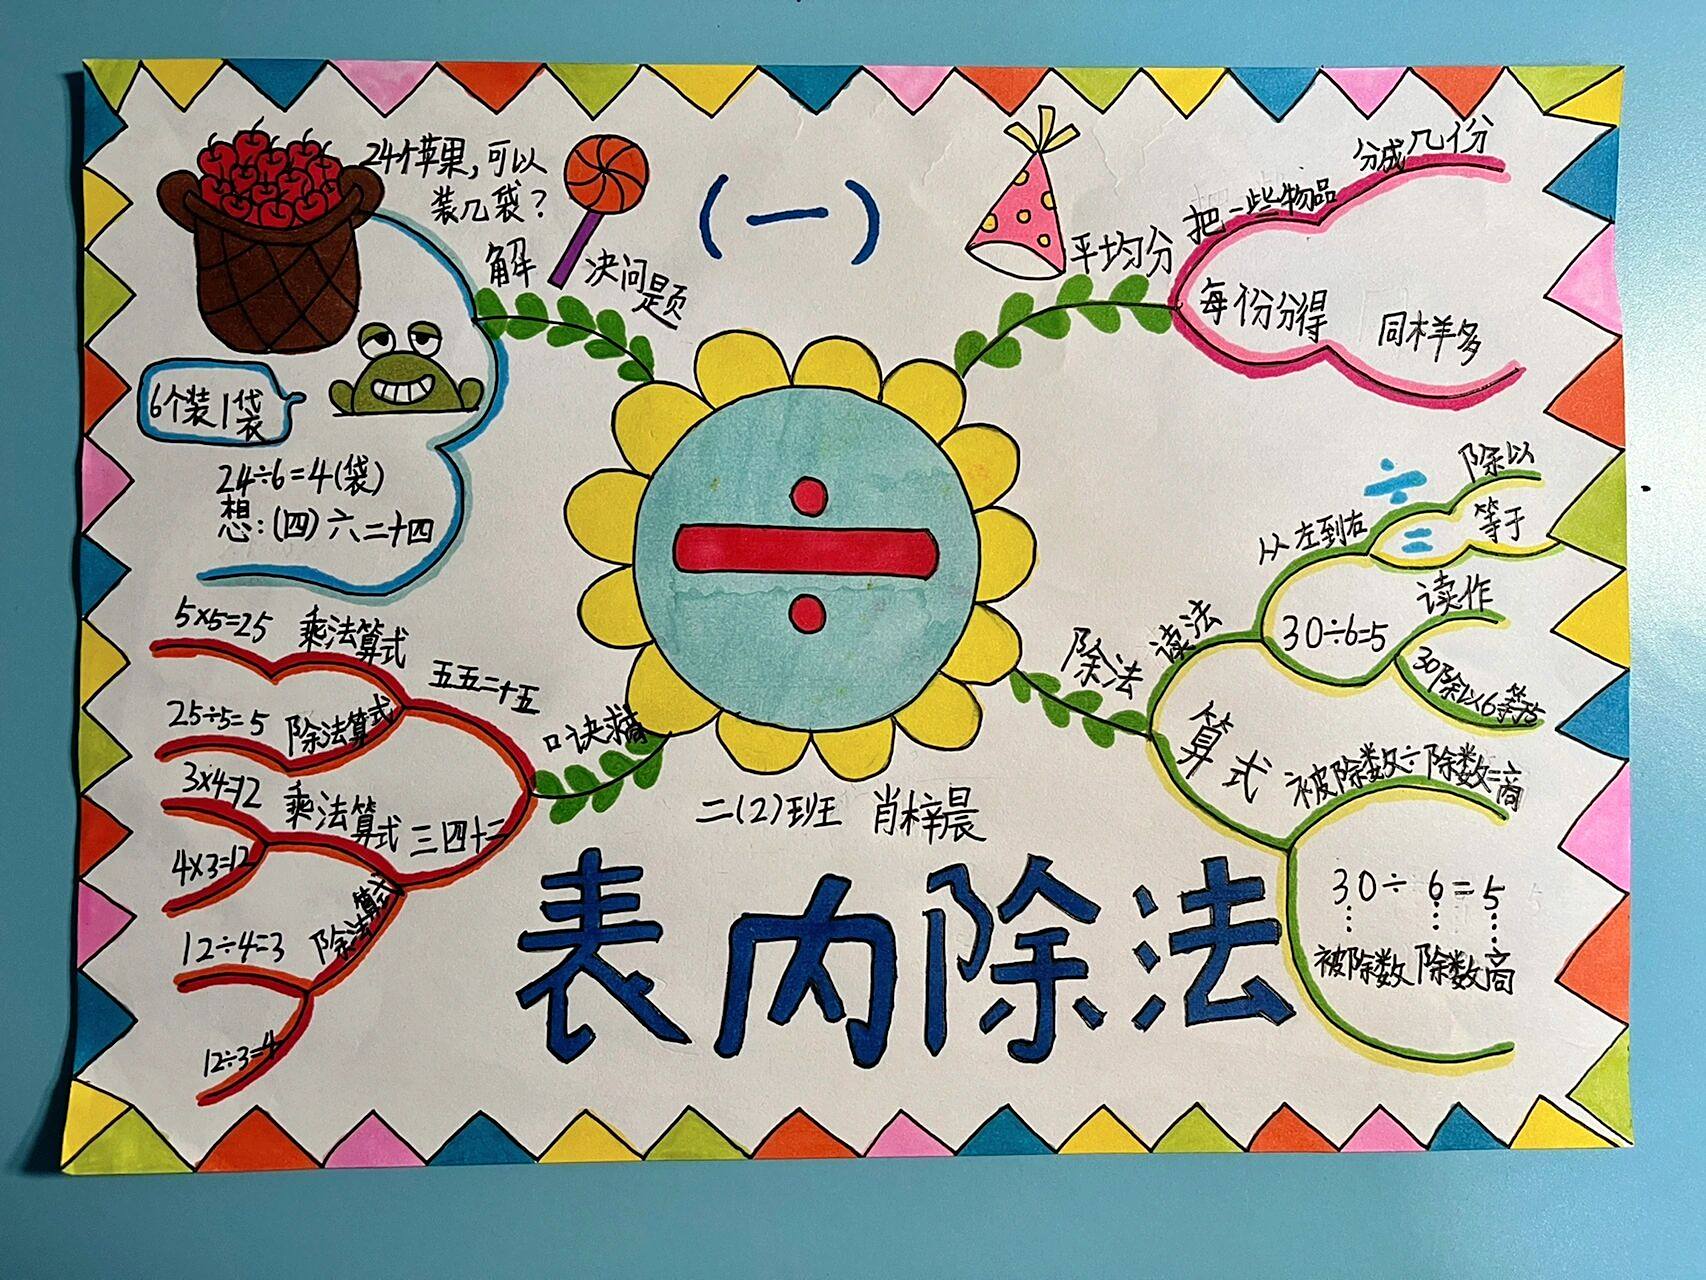 24个苹果,可以
装几袋?
解决问题
6个装1袋
24÷6=4(袋)
想:(四)六二十四
(一)
平均分
把一些物品
分成几份
每份分得
同样多
÷
除法 读法
从左到右
÷ 除以
= 等于
30÷6=5
读作
30除以6等于5
算式
被除数÷除数=商
30÷6=5
被除数 除数 商
口诀
五五二十五
5×5=25 乘法算式
25÷5=5 除法算式
三四十二
3×4=12 乘法算式
4×3=12
12÷4=3 除法算式
12÷3=4
二(2)班 肖梓晨
表内除法